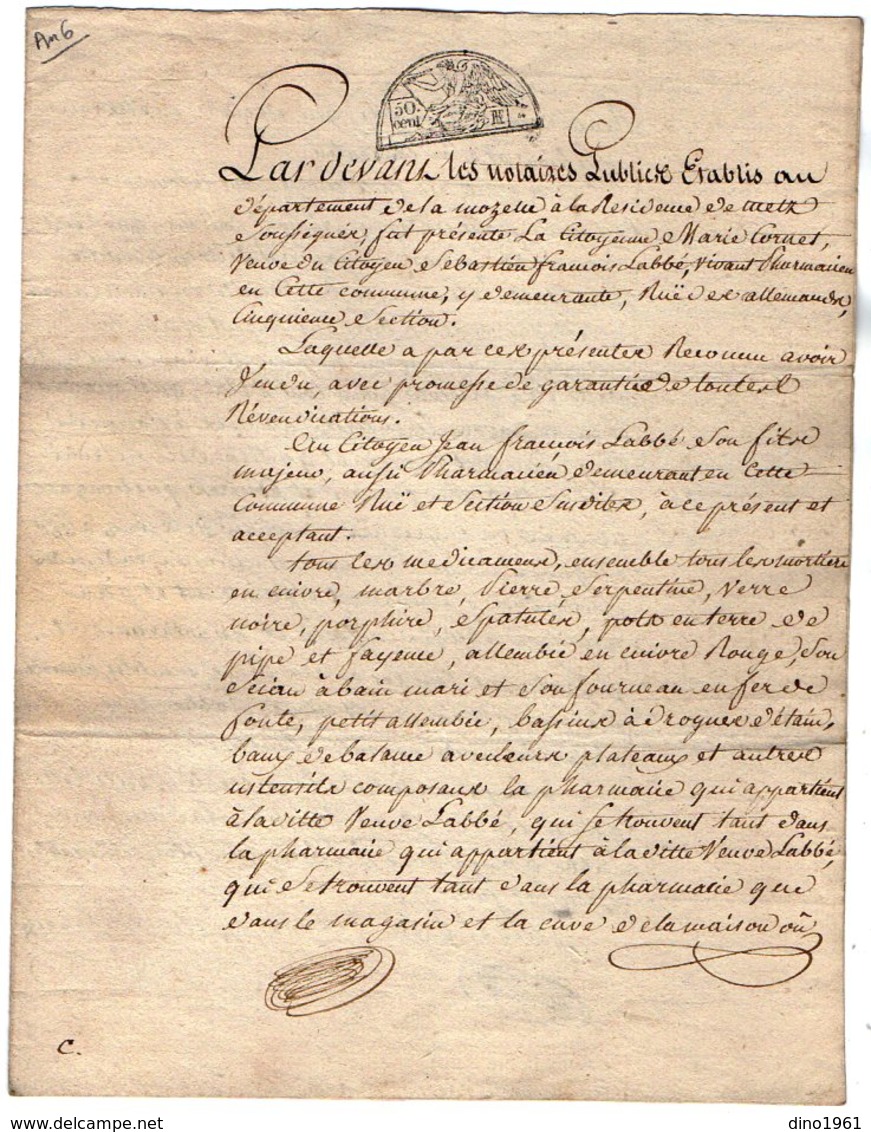 An 6
50. cent
Par devant les notaires Publics Etablis au
département de la mozelle à la Residence de metz
Soussignés, fut présente La Citoyenne Marie Cornet,
Veuve du Citoyen Sébastien françois Labbé, vivant Pharmacien
en Cette commune, y demeurante, Ruë des allemands,
Cinquieme Section.
Laquelle a par ces présentes Reconnu avoir
Vendu, avec promesse de garantie de toutes
Révendications.
Au Citoyen Jean françois Labbé son fils
majeur, aussi Pharmacien demeurant en Cette
Commune Ruë et Section Susdites, à ce présent et
acceptant.
tous les medicamens, ensemble tous les mortiers
en cuivre, marbre, Pierre Serpentine, verre
noire, porphire, Spatules, pots en terre de
pipe et fayence, allembic en cuivre Rouge, Son
Sciau à bain mari et Son fourneau en fer de
fonte, petit allembic, bassins à drogues d'étain,
baux de balance avec leurs plateaux et autres
ustensils composans la pharmacie qui appartient
à la ditte Veuve Labbé, qui se trouvent tant dans
la pharmacie qui appartient à la ditte Veuve Labbé,
qui Se trouvent tant dans la pharmacie que
dans le magasin et la cave de la maison où
C.
delcampe.net
dino1961